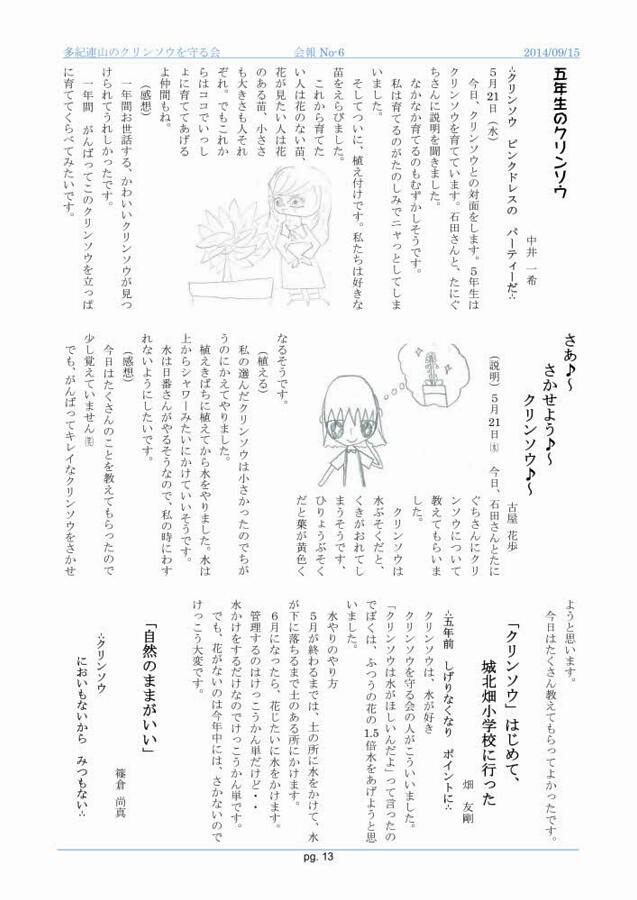 多紀連山のクリンソウを守る会
会報 No-6
2014/09/15
五年生のクリンソウ
中井 一希
∴クリンソウ ピンクドレスの パーティーだ∴
5月21日(水)
今日、クリンソウとの対面をします。5年生は
クリンソウを育てています。石田さんと、たにぐ
ちさんに説明を聞きました。
なかなか育てるのもむずかしそうです。
私は育てるのがたのしみでニャっとしてしま
いました。
そしてついに、植え付けです。私たちは好きな
苗をえらびました。
これから育てた
い人は花のない苗、
花が見たい人は花
のある苗、小ささ
も大きさも人それ
ぞれ。でもこれか
らはココでいっし
ょに育ててあげる
よ仲間もね。
(感想)
一年間お世話する、かわいいクリンソウが見つ
けられてうれしかったです。
一年間 がんばってこのクリンソウを立っぱ
に育ててくらべてみたいです。
さあ♪～
さかせよう♪～
クリンソウ♪～
古屋 花歩
(説明)5月21日㈬ 今日、石田さんとたに
ぐちさんにクリ
ンソウについて
教えてもらいま
した。
クリンソウは
水ぶそくだと、
くきがおれてし
まうそうです、
ひりょうぶそく
だと葉が黄色く
なるそうです。
(植える)
私の選んだクリンソウは小さかったのでちが
うのにかえてやりました。
植えきばちに植えてから水をやりました。水は
上からシャワーみたいにかけていいそうです。
水は日番さんがやるそうなので、私の時にわす
れないようにしたいです。
(感想)
今日はたくさんのことを教えてもらったので
少し覚えていません㊫
でも、がんばってキレイなクリンソウをさかせ
ようと思います。
今日はたくさん教えてもらってよかったです。
「クリンソウ」はじめて、
城北畑小学校に行った
畑 友剛
∴五年前 しげりなくなり ポイントに∴
クリンソウは、水が好き
クリンソウを守る会の人がこういいました。
「クリンソウは水がほしいんだよ」って言ったの
でぼくは、ふつうの花の1.5倍水をあげようと思
いました。
水やりのやり方
5月が終わるまでは、土の所に水をかけて、水
が下に落ちるまで土のある所にかけます。
6月になったら、花じたいに水をかけます。
管理するのはけっこうかん単だけど・・
水かけをするだけなのでけっこうかん単です。
でも、花がないのは今年中には、さかないので
けっこう大変です。
「自然のままがいい」
篠倉 尚真
∴クリンソウ
においもないから みつもない∴
pg. 13